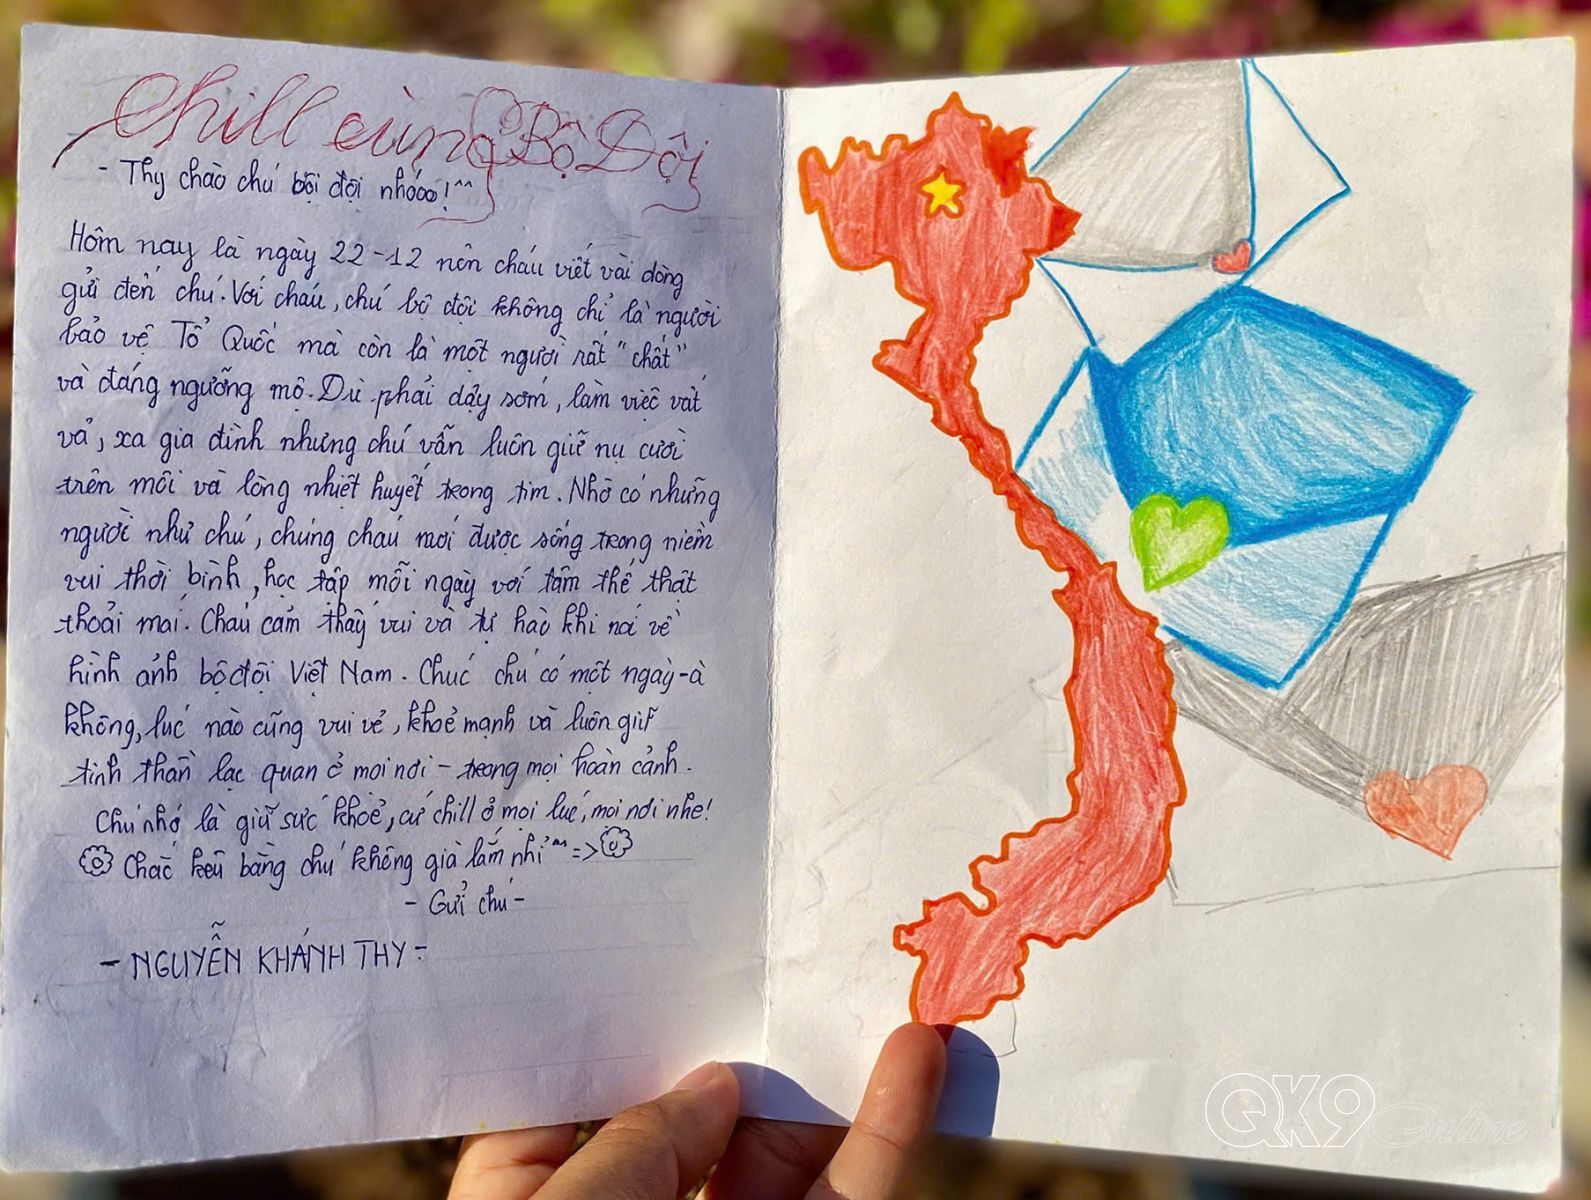 Chill cùng Bộ Đội
- Thy chào chú bội đội nhóoo!^^
Hôm nay là ngày 22-12 nên cháu viết vài dòng
gửi đến chú. Với cháu, chú bộ đội không chỉ là người
bảo vệ Tổ Quốc mà còn là một người rất "chất"
và đáng ngưỡng mộ. Dù phải dậy sớm, làm việc vất
vả, xa gia đình nhưng chú vẫn luôn giữ nụ cười
trên môi và lòng nhiệt huyết trong tim. Nhờ có những
người như chú, chúng cháu mới được sống trong niềm
vui thời bình, học tập mỗi ngày với tâm thế thật
thoải mái. Cháu cảm thấy vui và tự hào khi nói về
hình ảnh bộ đội Việt Nam. Chúc chú có một ngày-à
không, lúc nào cũng vui vẻ, khoẻ mạnh và luôn giữ
tinh thần lạc quan ở mọi nơi - trong mọi hoàn cảnh.
Chú nhớ là giữ sức khoẻ, cứ chill ở mọi lúc, mọi nơi nhe!
Chắc kêu bằng chú không già lắm nhỉ ^^ =>
- Gửi chú -
- NGUYỄN KHÁNH THY -
QK9 Online